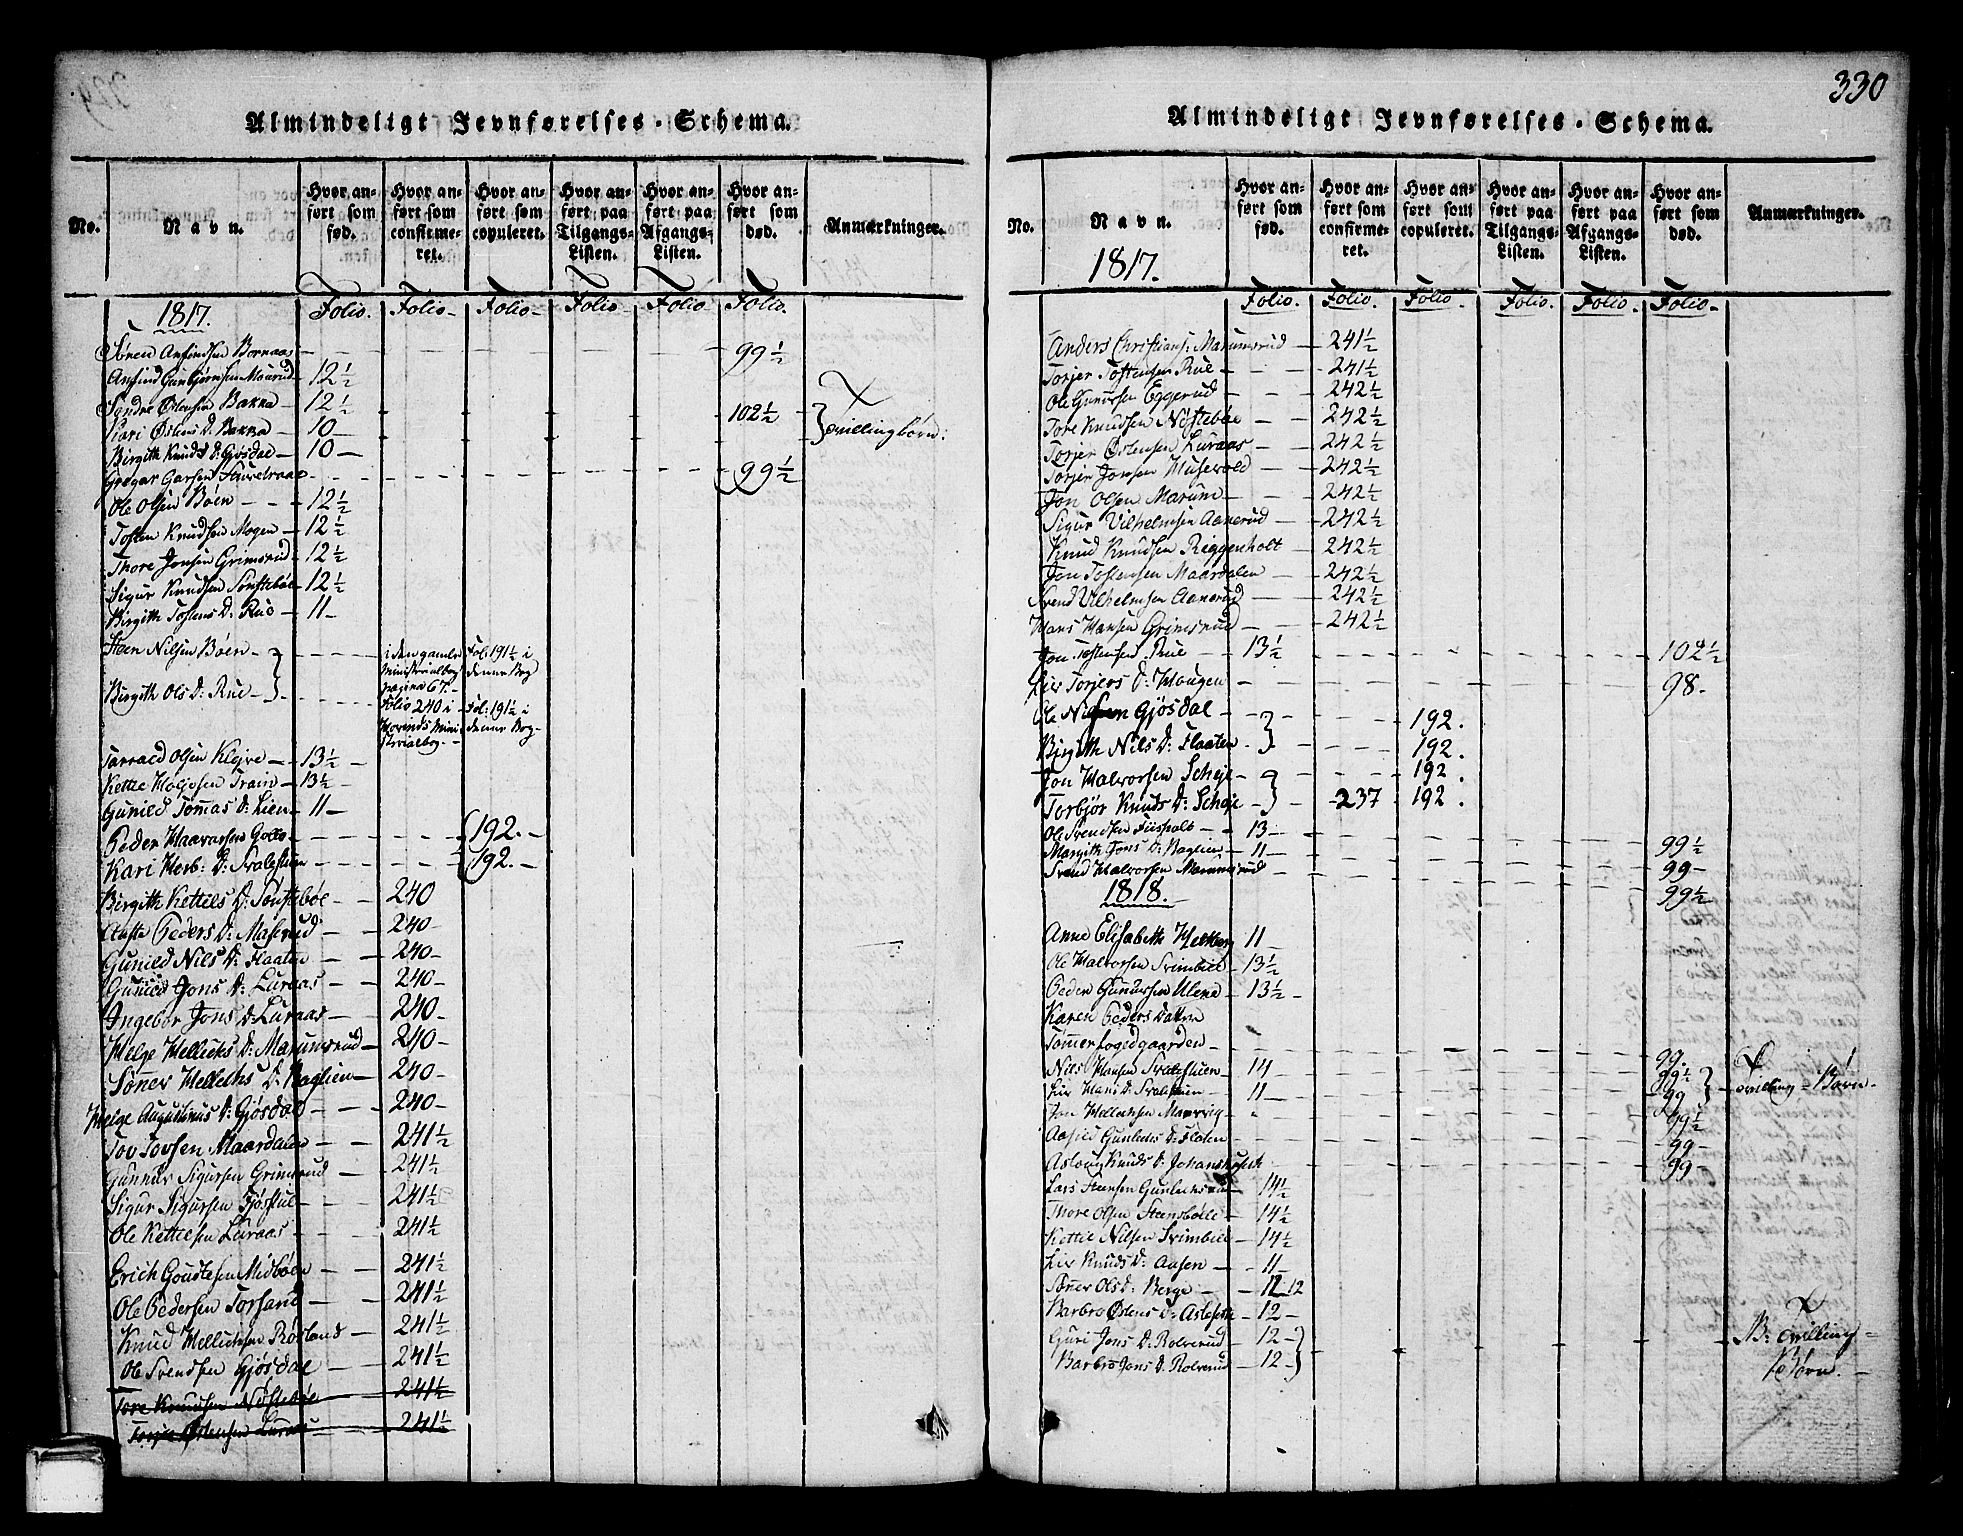 330
Almindeligt Jevnførelses-Schema.
No.
Navn.
Hvor anført som fød.
Hvor anført som confirmeret.
Hvor anført som copuleret.
Hvor anført paa Tilgangs-Listen.
Hvor anført paa Afgangs-Listen.
Hvor anført som død.
Anmærkninger.
1817.
Folio. Folio- Folio- Folio- Folio- Folio.
Sønen Anfindsen Bornaas 99½
Anfind Gunbjørnsen Mourud 12½
Sondre Østensen Bakka 12½
Kari Østens D. Bakka 10 102½ Tvillingbørn:
Birgith Knuds D: Gjøsdal 10
Gregar Garsen 99½
Ole Olsen Bøen 12½
Tosten Knudsen Mogen 12½
Thore Jonsen Grimsrud 12½
Sigur Knudsen Sønstebøe 12½
Birgith Tostens D: Rue 11
Steen Nilsen Bøen i den gamle Ministerialbog pagina 67. Fol: 191½ i denne Bog
Birgith Ols D: Rue Folio 240 i Hovinds Ministerialbog. Fol: 191½ i denne Bog
Tarrald Olsen Klejve 13½
Kettil 13½
Gunild Tommas D: Lien 11
Peder Haavarsen 192.
Kari Herb: D: Svalestuen 192.
Birgith Kettils D: Sønstebøe 240
Peders D: Maserud 240
Gunild Nils D: Flaaten 240
Gunild Jons D: Luraas 240
Ingebor Jons D: Luraas 240
Helge Hellecks D: Marumsrud 240
Søner Helleks D: Baglien 240
Helge Augustinus D: Gjøsdal 240
Tov Tovsen Maardalen 241½
Gunnur Sigursen Grimsrud 241½
Sigur Sigursen 241½
Ole Kettelsen Luraas 241½
Erich Goutesen Midbøen 241½
Ole Pedersen Torsand 241½
Knud Helleksen Røisland 241½
Ole Svendsen Gjøsdal 241½
Tore Knudsen Nøstebøe 241½
Torjer Østensen Luraas 241½
Almindeligt Jevnførelses-Schema.
No.
Navn.
1817.
Hvor anført som fød.
Hvor anført som confirmeret.
Hvor anført som copuleret.
Hvor anført paa Tilgangs-Listen.
Hvor anført paa Afgangs-Listen.
Hvor anført som død.
Anmærkninger.
Folio. Folio. Folio Folio. Folio. Folio-
Anders Christians: Marumsrud 241½
Torjer Tostensen Rue 241½
Ole Gunursen Eggerud 242½
Tore Knudsen Nøstebøe 242½
Torjer Østensen Luraas 242½
Torjer Jonsen Husevold 242½
Jon Olsen Marum 242½
Sigur Vilhelmsen Aanerud 242½
Knud Knudsen Riggenholt 242½
Jon Tostensen Maardalen 242½
Svend Vilhelmsen Aanerud 242½
Hans Hansen Grimsrud 242½
Jon Tostensen Rue 13½ 102½
Liv Torjers D: Hougen 98.
Ole Nilsen Gjøsdal 192.
Birgith Nils D: Flaaten 192.
Jon Halvorsen Scheje 192.
Torbjør Knuds D: Scheje 237 192.
Ole Svendsen 13
Margith Jons D: Baglien 11 99½
Svend Halvorsen Marumsrud 99
1818. 99½
Anne Elisabeth 11
Ole Halvorsen Svimbiel 13½
Peder Gunursen 13½
Karen Peders Datter
Tømmerfogedgaarden 99.
Nils Hansen Svalestuen 14 99½ Tvilling-Børn.
Liv Hans D: Svalestuen 11 99
Jon Helleksen 99½
Aasild Gunlechs D: Floten 99
Asloug Knuds D: 99
Lars Steensen 14½
Thore Olsen Steensbølle 14½
Kettil Nilsen Svimbiel 14½
Liv Knuds D: Aasen 11
Søner Ols D: Berge 12 12
Barbro Østens D: 12
Guri Jons D: Rolverud 12
Barbro Jons D: Rolverud 12
B: Tvilling-
Børn.